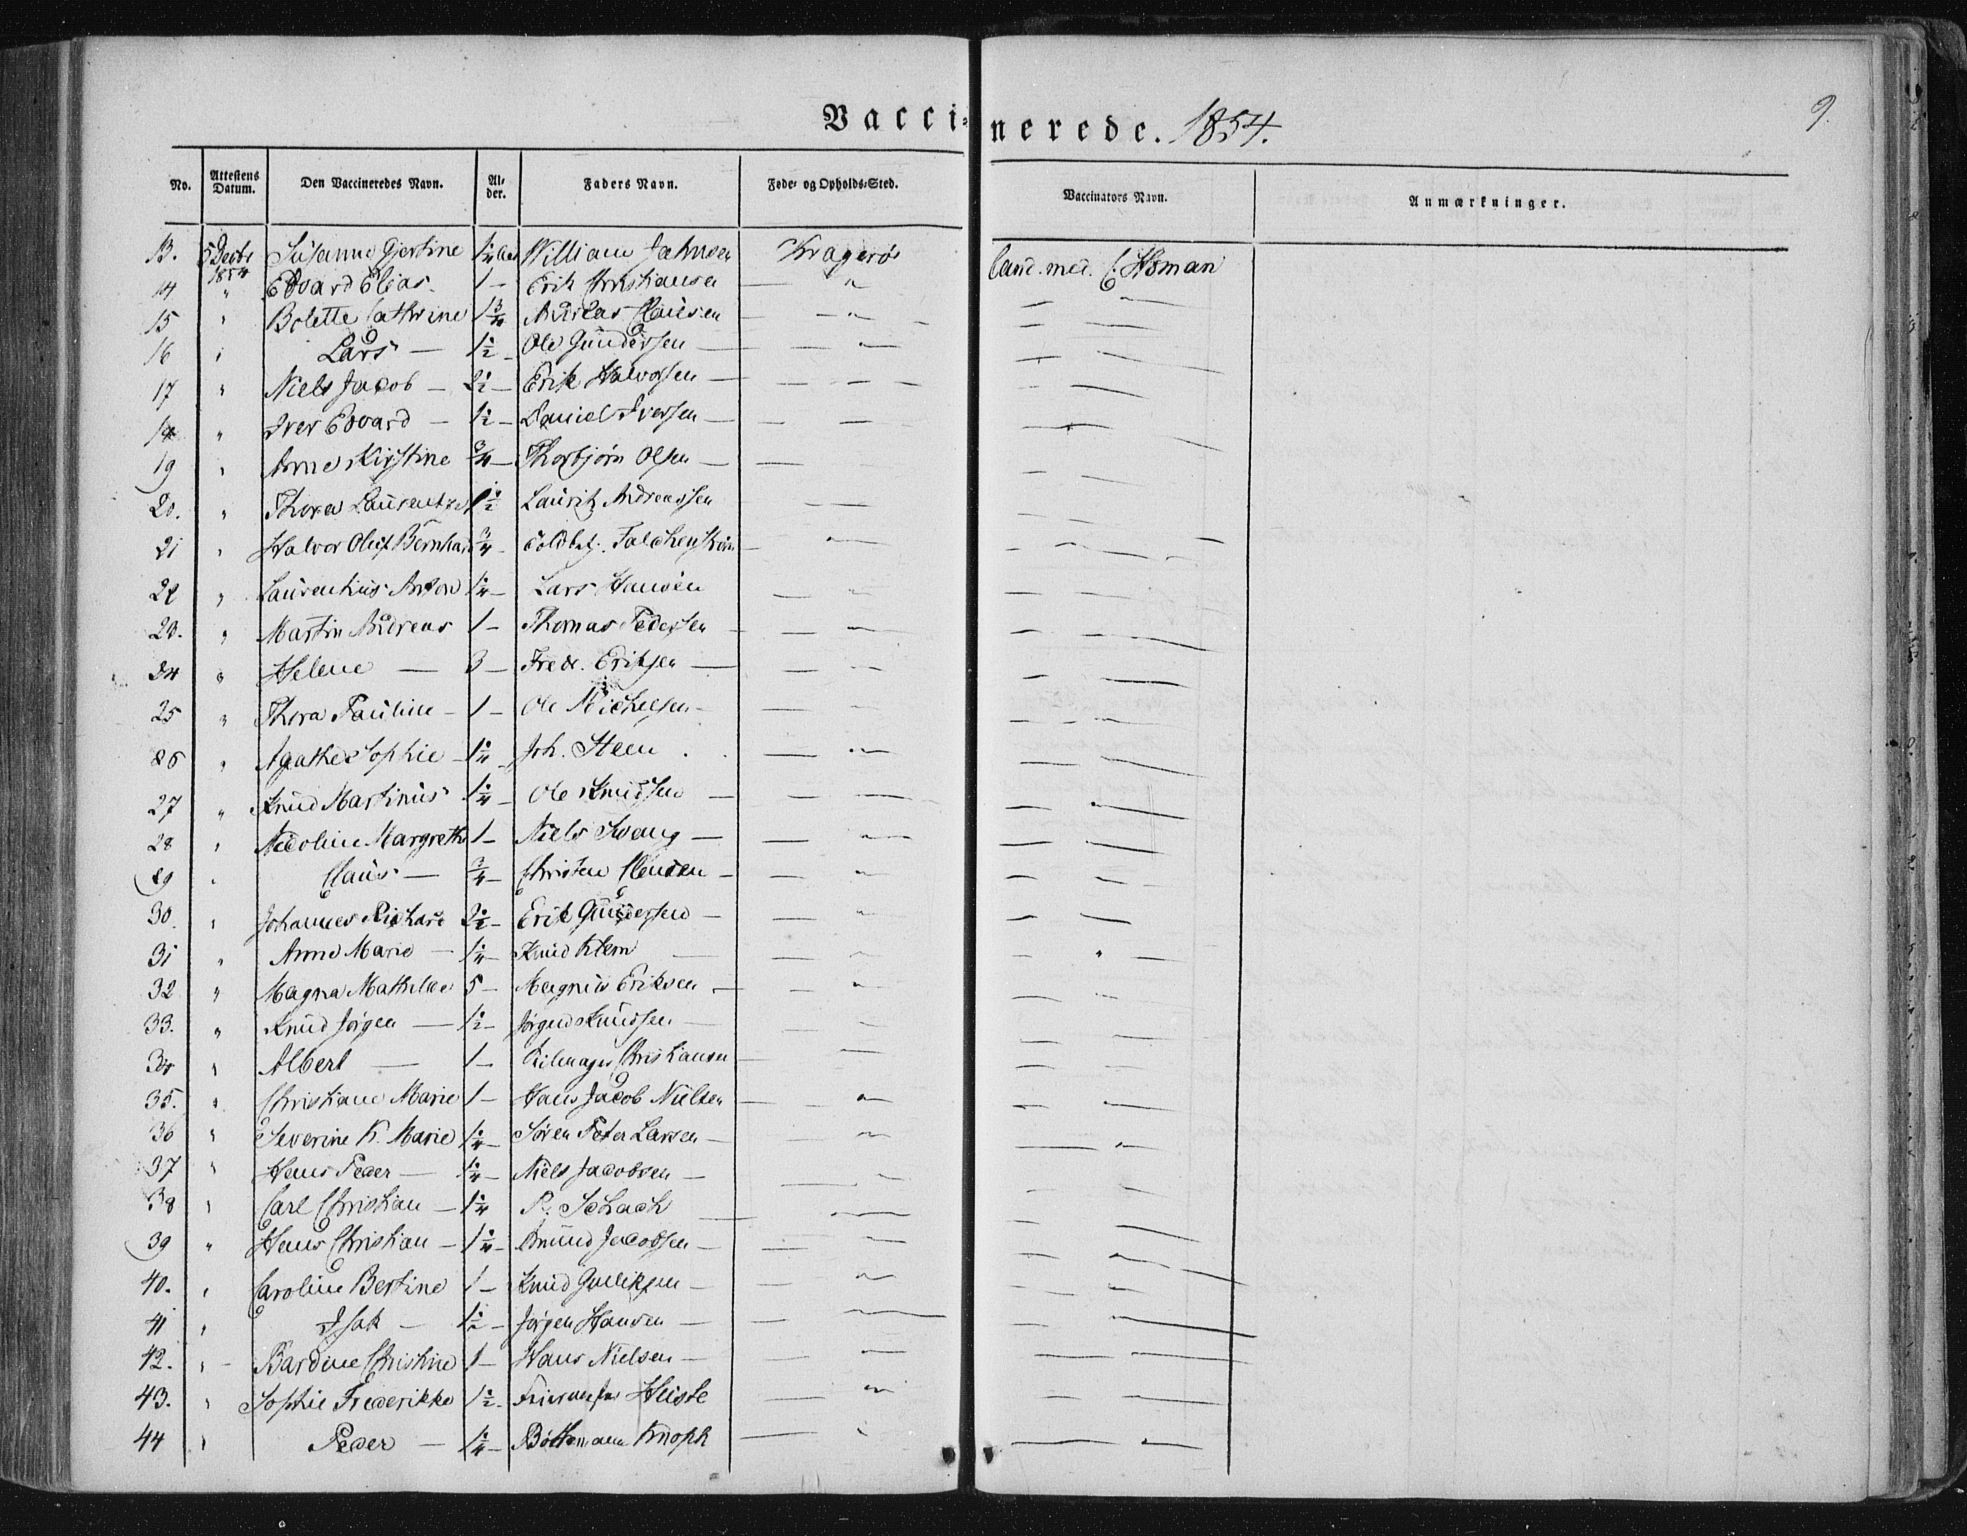 Vaccinerede. 1854. 9.
No. Attestens Datum. Den Vaccineredes Navn. Alder. Faders Navn. Føde- og Opholds-Sted. Vaccinators Navn. Anmærkninger.
13. 5 Decbr 1854 Susanne Gjertine William Kragerø Cand. med. C. Homan
14 " Edvard Elias 1 - Erik Christiansen — " —
15 " Bolette Cathrine Andreas Clausen — " —
16 " Lars — 1 1/2 - Ole Gundersen —
17 " Niels Jacob — 2 1/2 - Erik Halvorsen —
18 " Iver Edvard — 1 1/2 - Daniel Iversen —
19 " Anne Kirstine 3/4 - Thorbjørn Olsen —
20. " Thora 1 1/2 Lauritz Andreassen
21 " Halvor Oluf 3/4 -
22 " Laurentius Anton 1 1/4 - Lars Hansen
23. " Martin Andreas 1 - Thomas Pedersen
24 " Helene — 3 - Fredr. Eriksen —
25 " Thora Pauline - 1 - Ole Michelsen -
26 " Agathe Sophie - 1 1/4 - Joh. Steen
27 " Knud Martinus 1 1/4 - Ole Knudsen
28 " Nicoline Margrethe 1 - Niels Svang —
29 " Claus — 3/4 - Christen —
30. " Johannes Richard 2 1/2 - Erik Gundersen —
31 " Anne Marie — 1 1/4 - Knud Klem
32 " Magna Mathilde 5 - Magnus Eriksen -
33. " Knud Jørgen — 1 1/2 - Jørgen Knudsen —
34 " Albert — 1 - Christiansen
35. " Christiane Marie 1 - Hans Jacob Nielsen
36 " Severine K. Marie 1 1/4 - Søren Peter Larsen —
37 " Hans Peder — 1 1/4 - Niels Jacobsen —
38 " Carl Christian — 1 1/4 P. Schack
39 " Hans Christian — 1 1/4 - Amund Jacobsen —
40. " Caroline Bertine 1 - Knud Gulliksen —
41 " Isak — 1 1/2 - Jørgen Hansen —
42. " - Bardine Christine 1 - Hans Nielsen —
43. " Sophie Frederikke 1 1/2 -
44 " Peder — 1 1/4 - Knoph